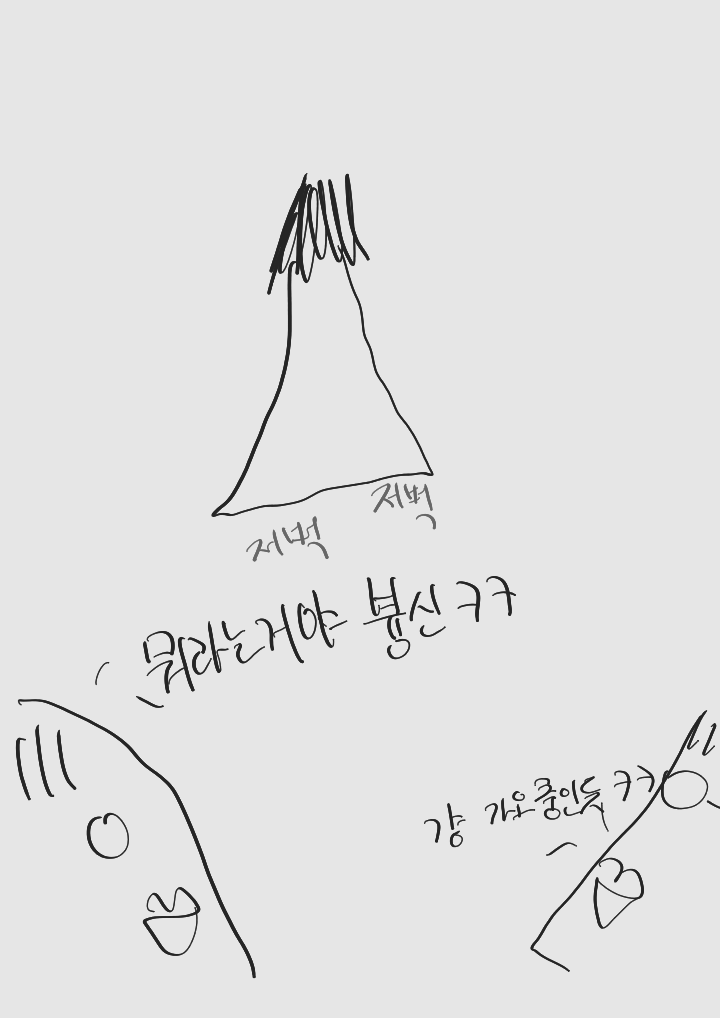 저벅
저벅
뭐라는거야 븅신 ㅋㅋ
걍 가오충인듯 ㅋㅋ